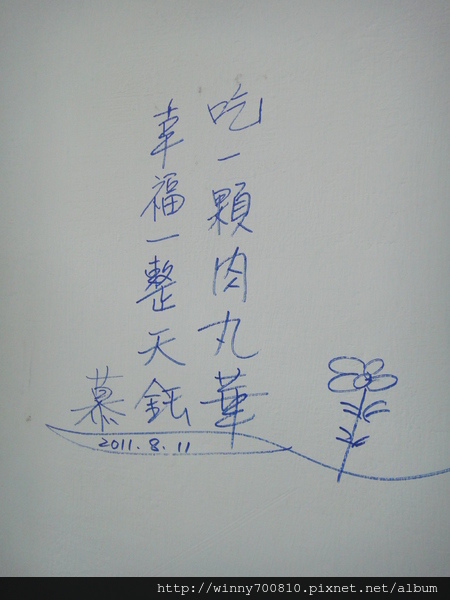 吃一顆肉丸華
幸福一整天鈺
慕
2011.8.11
http://winny700810.pixnet.net/album